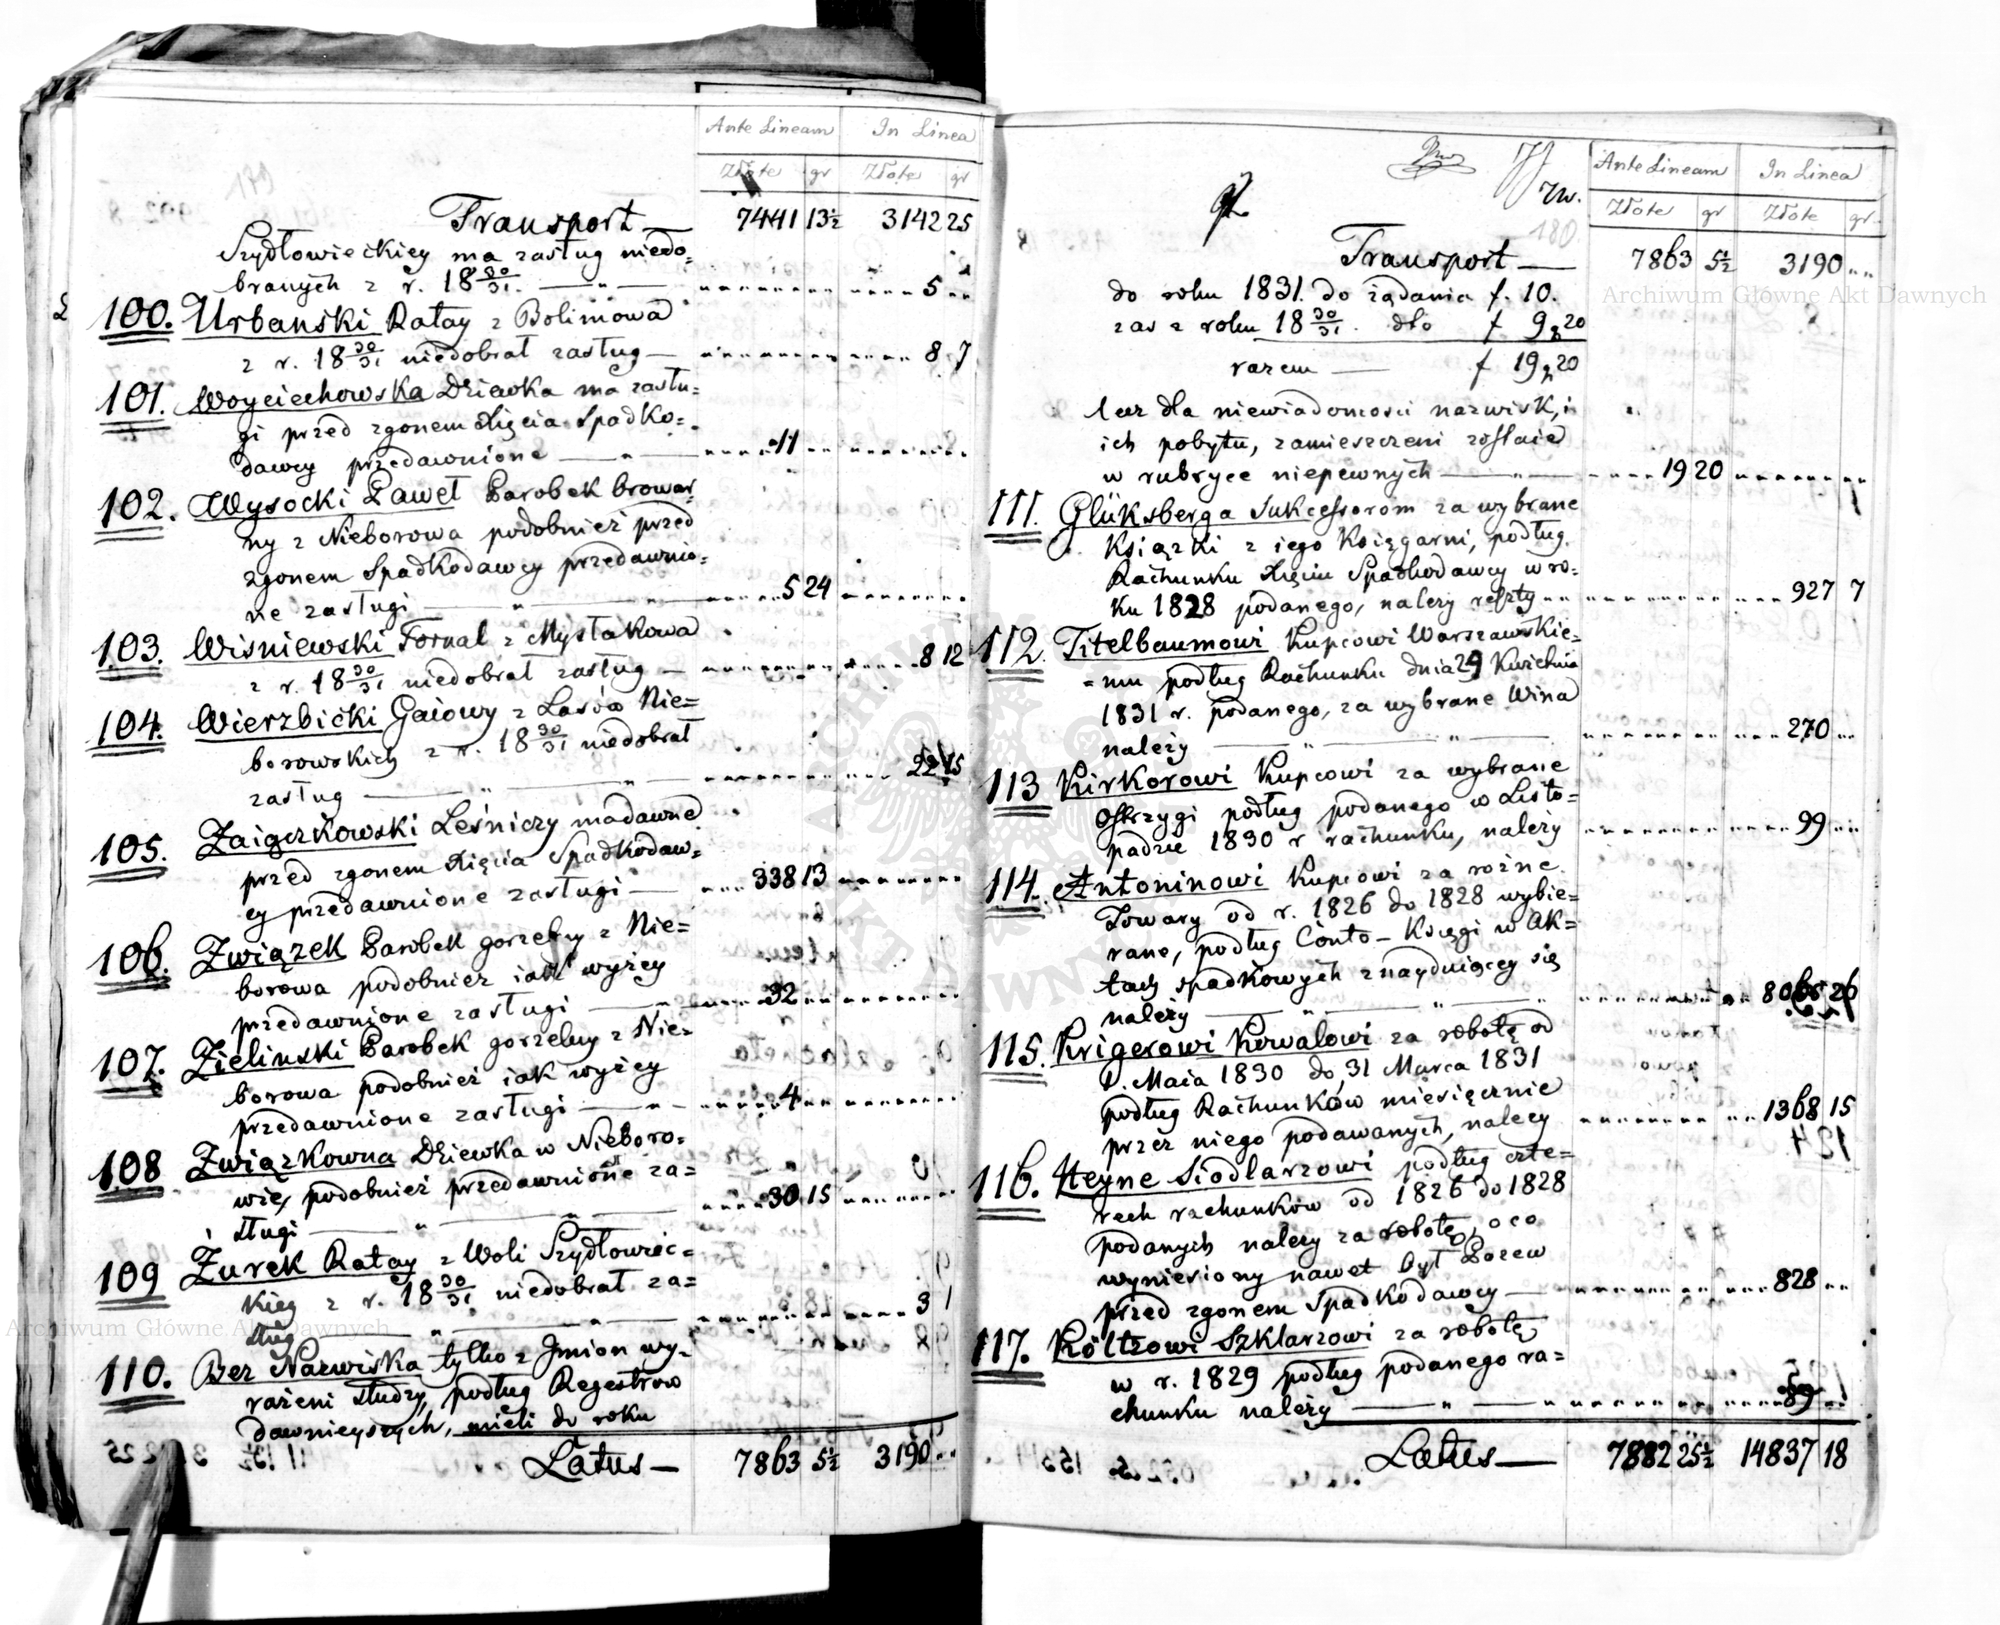 Ante Lineam In Linea
Złote gr Złote gr
Transport 7441 13½ 3142 25
Szydłowieckiey ma zasług niedo=
branych z r. 18 30/31. — " — 5 "
100. Urbański Ratay z Bolimowa
z r. 18 30/31 niedobrał zasług — 8 7
101. Woyciechowska Dziewka ma zasłu=
gi przed zgonem Xięcia Spadko=
dawcy przedawnione — " — 11 "
102. Wysocki Paweł Parobek browar=
ny z Nieborowa podobnież przed
zgonem Spadkodawcy przedawnio=
ne zasługi — " — 5 24
103. Wiśniewski Fornal z Mysłakowa
z r. 18 30/31 niedobrał zasług — 8 12
104. Wierzbicki Gaiowy z Lasów Nie=
borowskich z r. 18 30/31 niedobrał
zasług — " — " — 22 15
105. Zaigczkowski Leśniczy ma dawne
przed zgonem Xięcia Spadkodaw=
cy przedawnione zasługi — 338 13
106. Związek Parobek gorzelny z Nie=
borowa podobnież iak wyżey
przedawnione zasługi — " — 32 "
107. Zieliński Parobek gorzelny z Nie=
borowa podobnież iak wyżey
przedawnione zasługi — " — 4 "
108 Związkowna Dziewka w Nieboro=
wie, podobnież przedawnione za=
sługi — " — " — 30 15
109 Żurek Ratay z Woli Szydłowiec=
kiey z r. 18 30/31 niedobrał za=
sług — " — " — 3 1
110. Bez Nazwiska tylko z Jmion wy=
rażeni słudzy, podług Regestrow
dawnieyszych, mieli do roku
Latus — 7863 5½ 3190 "
Ante Lineam In Linea
Złote gr Złote gr
180
Transport — 7863 5½ 3190 "
do roku 1831. do żądania f. 10.
zas z roku 18 30/31. dto f 9 g 20
razem — f 19 g 20
lecz dla niewiadomosci nazwisk, i
ich pobytu, zamieszczeni zostaią
w rubryce niepewnych — " — 19 20
111. Glüksberga Sukcessorom za wybrane
Książki z iego Księgarni, podług
Rachunku Xięciu Spadkodawcy w ro=
ku 1828 podanego, należy reszty 927 7
112. Titelbaumowi Kupcowi Warszawskie=
=mu podług Rachunku dnia 29 Kwietnia
1831 r. podanego, za wybrane Wina
należy — " — " — 270 "
113 Kirkorowi Kupcowi za wybrane
Ostrzygi podług podanego w Listo=
padzie 1830 r rachunku, należy 99 "
114. Antoninowi Kupcowi za rożne
Towary od r. 1826 do 1828 wybie=
rane, podług Conto - Księgi w Ak=
tach spadkowych znayduiącey się
należy — " — " — 8065 26
115. Krigerowi Kowalowi za robotę od
1. Maia 1830 do 31 Marca 1831
podług Rachunków miesięcznie
przez niego podawanych, należy 1368 15
116. Heyne Siodlarzowi podług czte=
rech rachunków od 1826 do 1828
podanych należy za robotę, o co
wyniesiony nawet był Pozew
przed zgonem Spadkodawcy — 828 "
117. Költzowi Szklarzowi za robotę
w r. 1829 podług podanego ra=
chunku należy — " — 89 "
Latus — 7882 25½ 14837 18
Archiwum Główne Akt Dawnych
Archiwum Główne Akt Dawnych